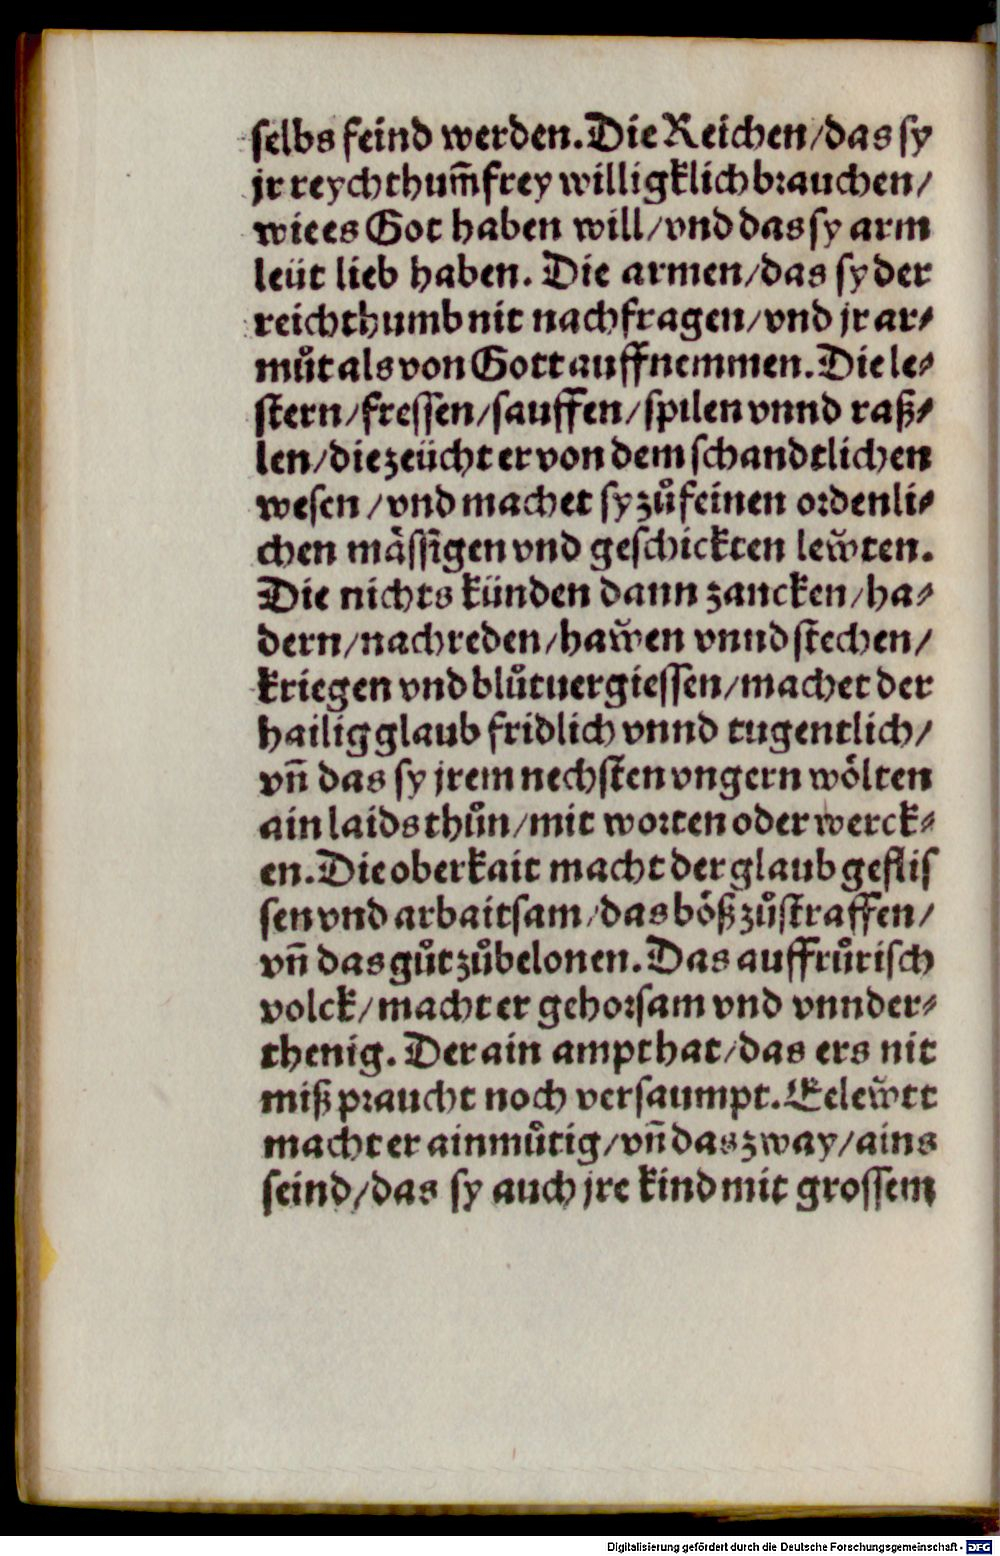 selbs feind werden. Die Reichen/das sy
jr reychthum̃ frey willigklich brauchen/
wie es Got haben will/vnd das sy arm
leüt lieb haben. Die armen/das sy der
reichthumb nit nachfragen/vnd jr ar⸗
můt als von Gott auffnemmen. Die le⸗
stern/fressen/sauffen/spilen vnnd raß⸗
len/die zeücht er von dem schandtlichen
wesen/vnd machet sy zů feinen ordenli⸗
chen mässigen vnd geschickten lew̆ten.
Die nichts künden dann zancken/ha⸗
dern/nachreden/haw̆en vnnd stechen/
kriegen vnd blůtuergiessen/machet der
hailig glaub fridlich vnnd tugentlich/
vñ das sy jrem nechsten vngern wölten
ain laids thůn/mit worten oder werck⸗
en. Die oberkait macht der glaub geflis
sen vnd arbaitsam/das böß zůstraffen/
vñ das gůt zůbelonen. Das auffrůrisch
volck/macht er gehorsam vnd vnnder⸗
thenig. Der ain ampt hat/das ers nit
mißpraucht noch versaumpt. Eelew̆tt
macht er ainmůtig/vñ das zway/ains
seind/das sy auch jre kind mit grossem
Digitalisierung gefördert durch die Deutsche Forschungsgemeinschaft - DFG